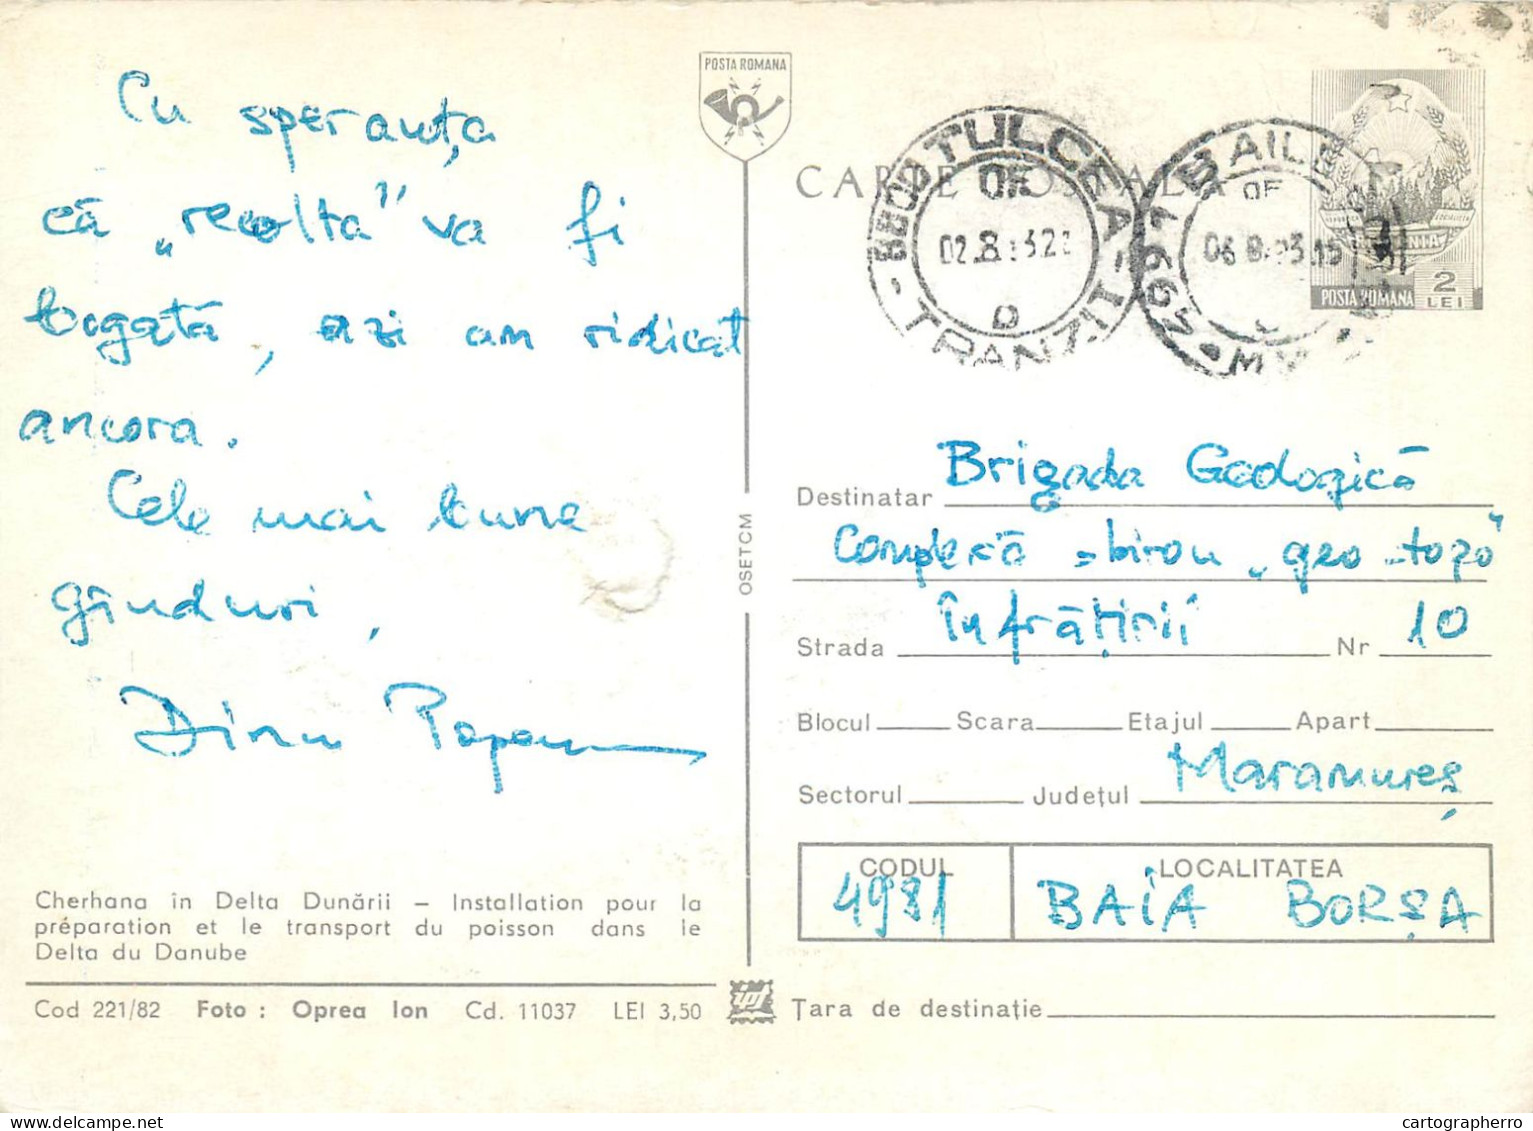 Cu speranța
că „recolta" va fi
bogată, azi am ridicat
ancora.
Cele mai bune
gânduri,
Dinu
Cherhana în Delta Dunării – Installation pour la
préparation et le transport du poisson dans le
Delta du Danube
Cod 221/82 Foto : Oprea Ion Cd. 11037 LEI 3,50
OSETCM
POSTA ROMANA
CARTE POSTALA
TULCEA - 1
OF
TRANZIT
OF
POSTA ROMANA 2 LEI
Destinatar Brigada Geologică
Complexă - birou „geo-topo"
Strada Înfrățirii Nr 10
Blocul Scara Etajul Apart
Sectorul Județul Maramureș
CODUL LOCALITATEA
4981 BAIA BORȘA
Țara de destinație
cartographerro